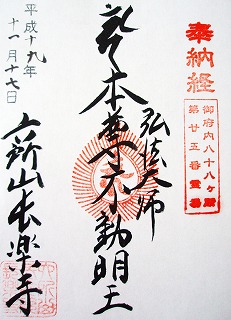 奉納経
御府内八十八ヶ所
第廿五番霊場
弘法大師
本尊不動明王
六所山長楽寺
平成十九年
十一月十七日